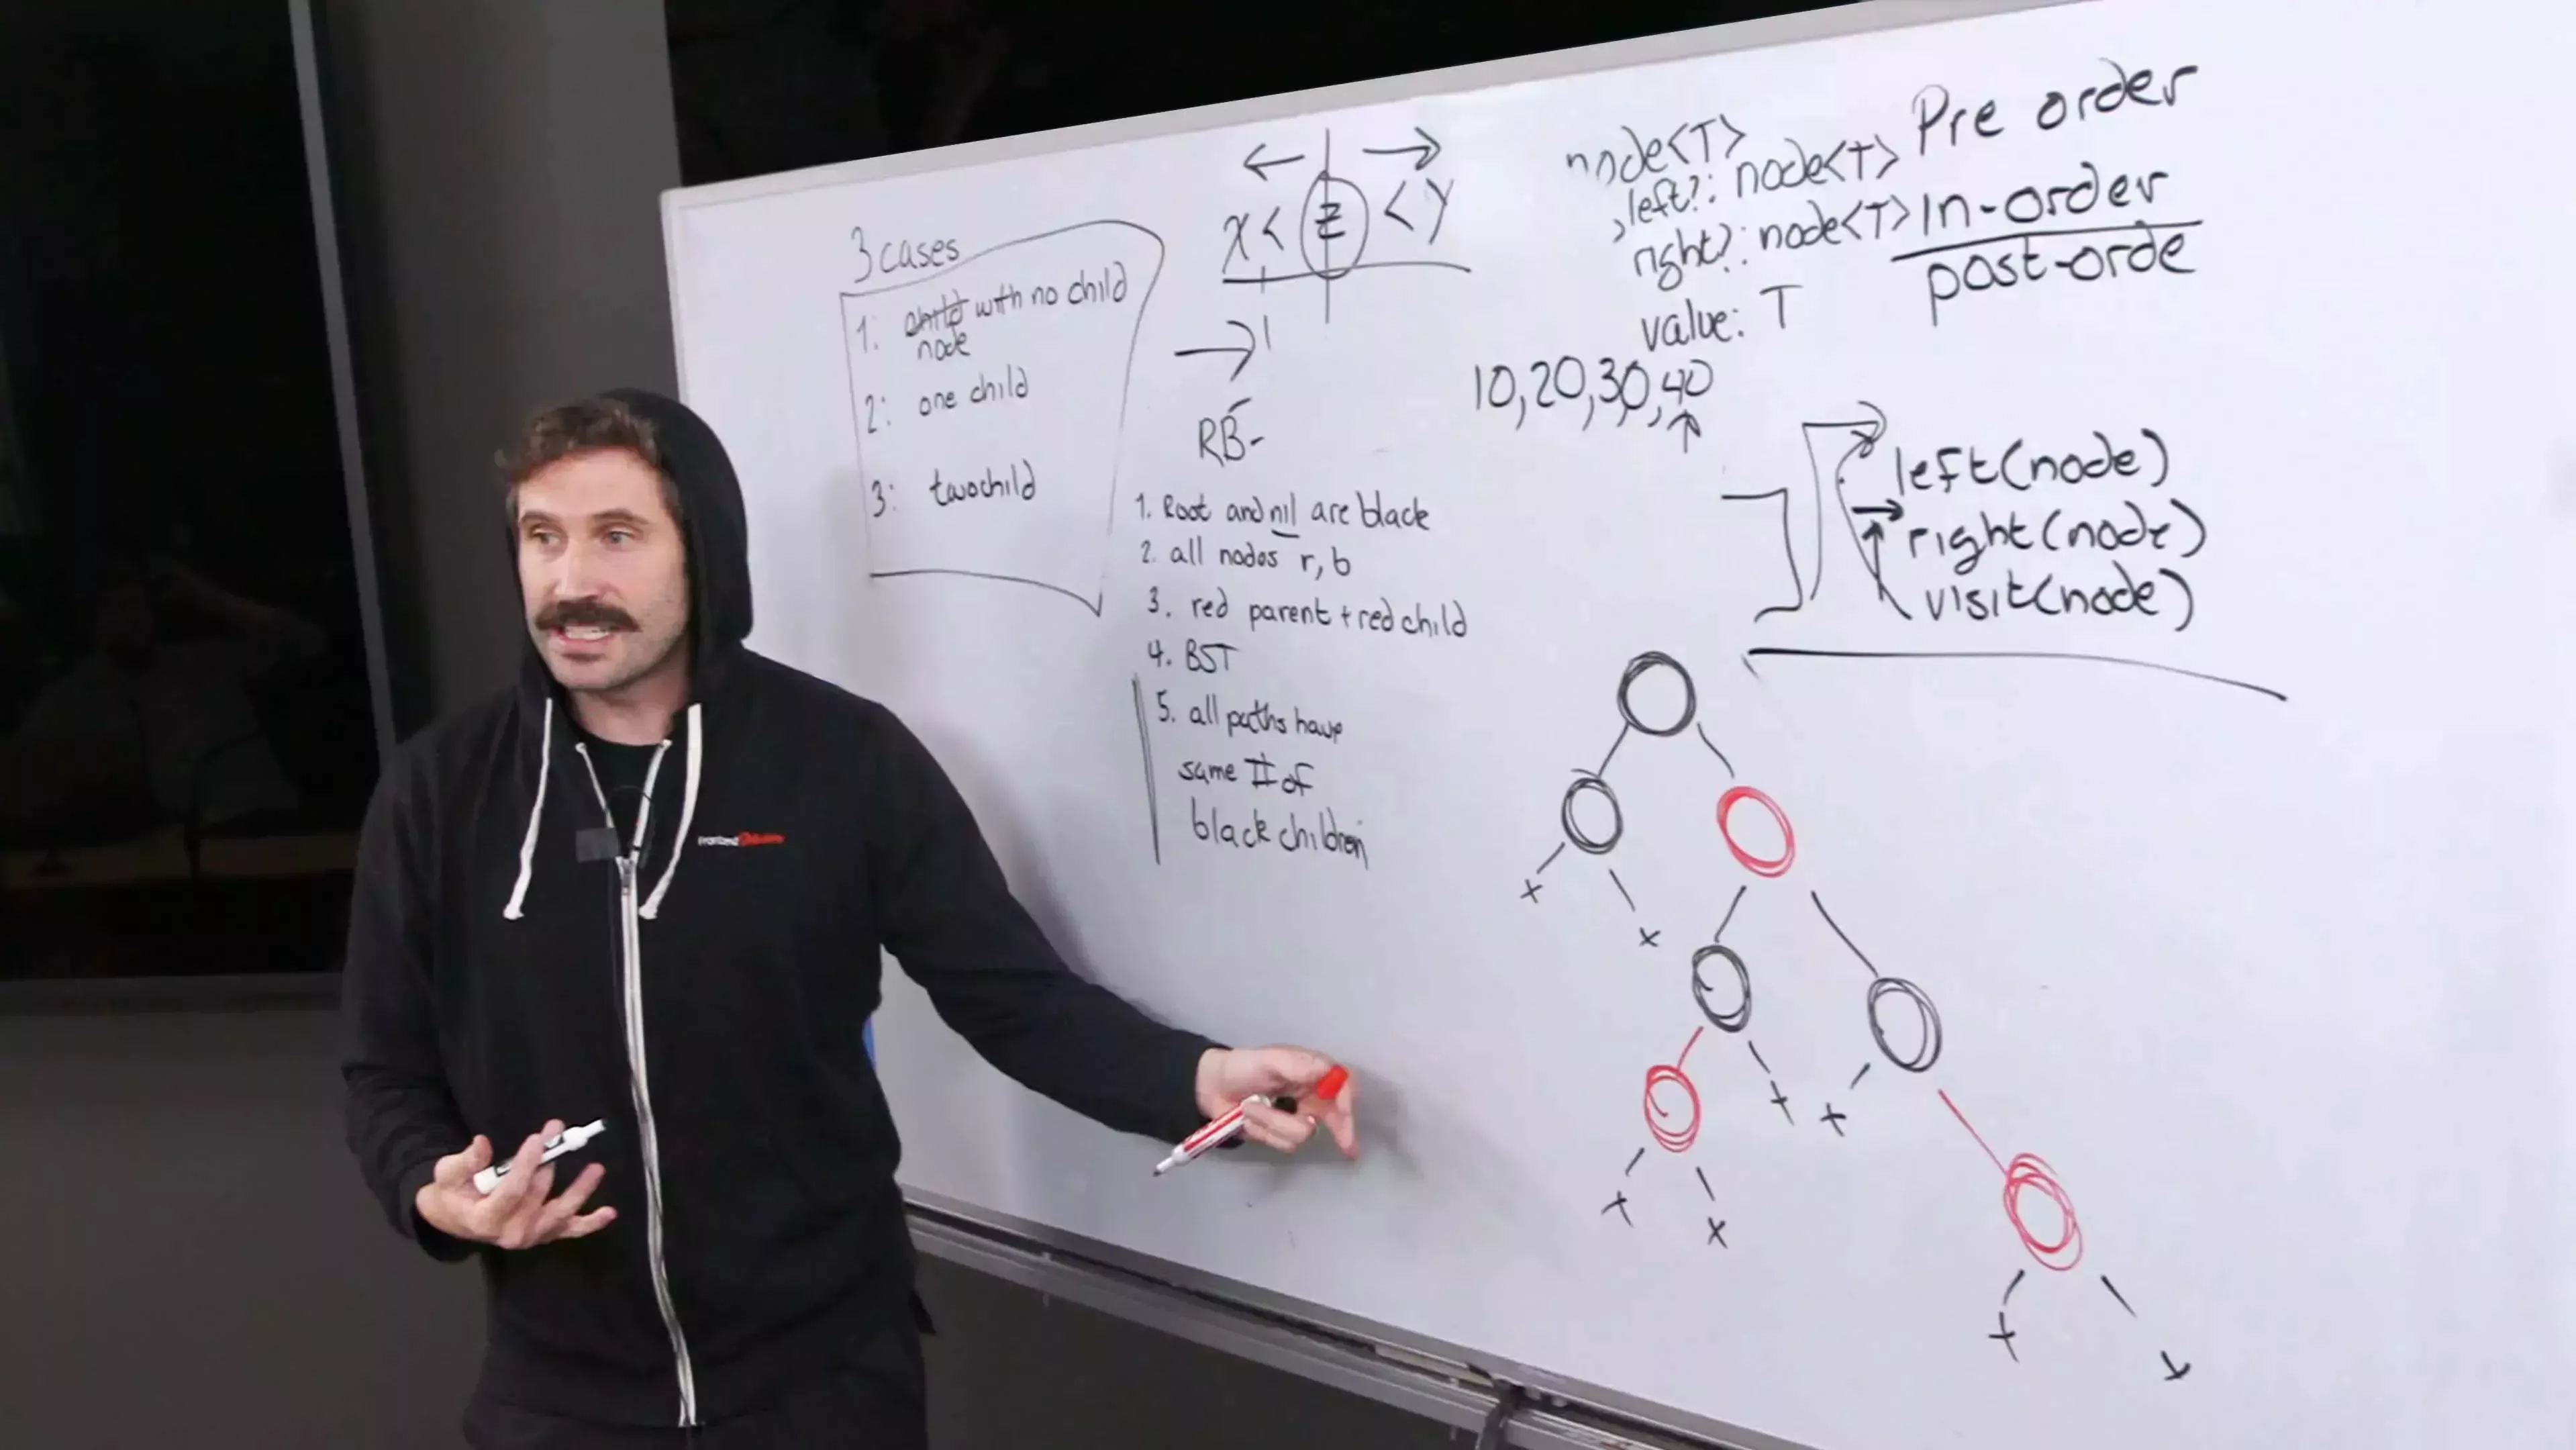 3 cases
1: child with no child
node
2: one child
3: two child
X < Z < Y
RB-
1. Root and nil are black
2. all nodes r, b
3. red parent + red child
4. BST
5. all paths have
same # of
black children
node<T>
left?: node<T>
right?: node<T>
value: T
Pre order
in-order
post-orde
10,20,30,40
left(node)
right(node)
visit(node)
Frontend